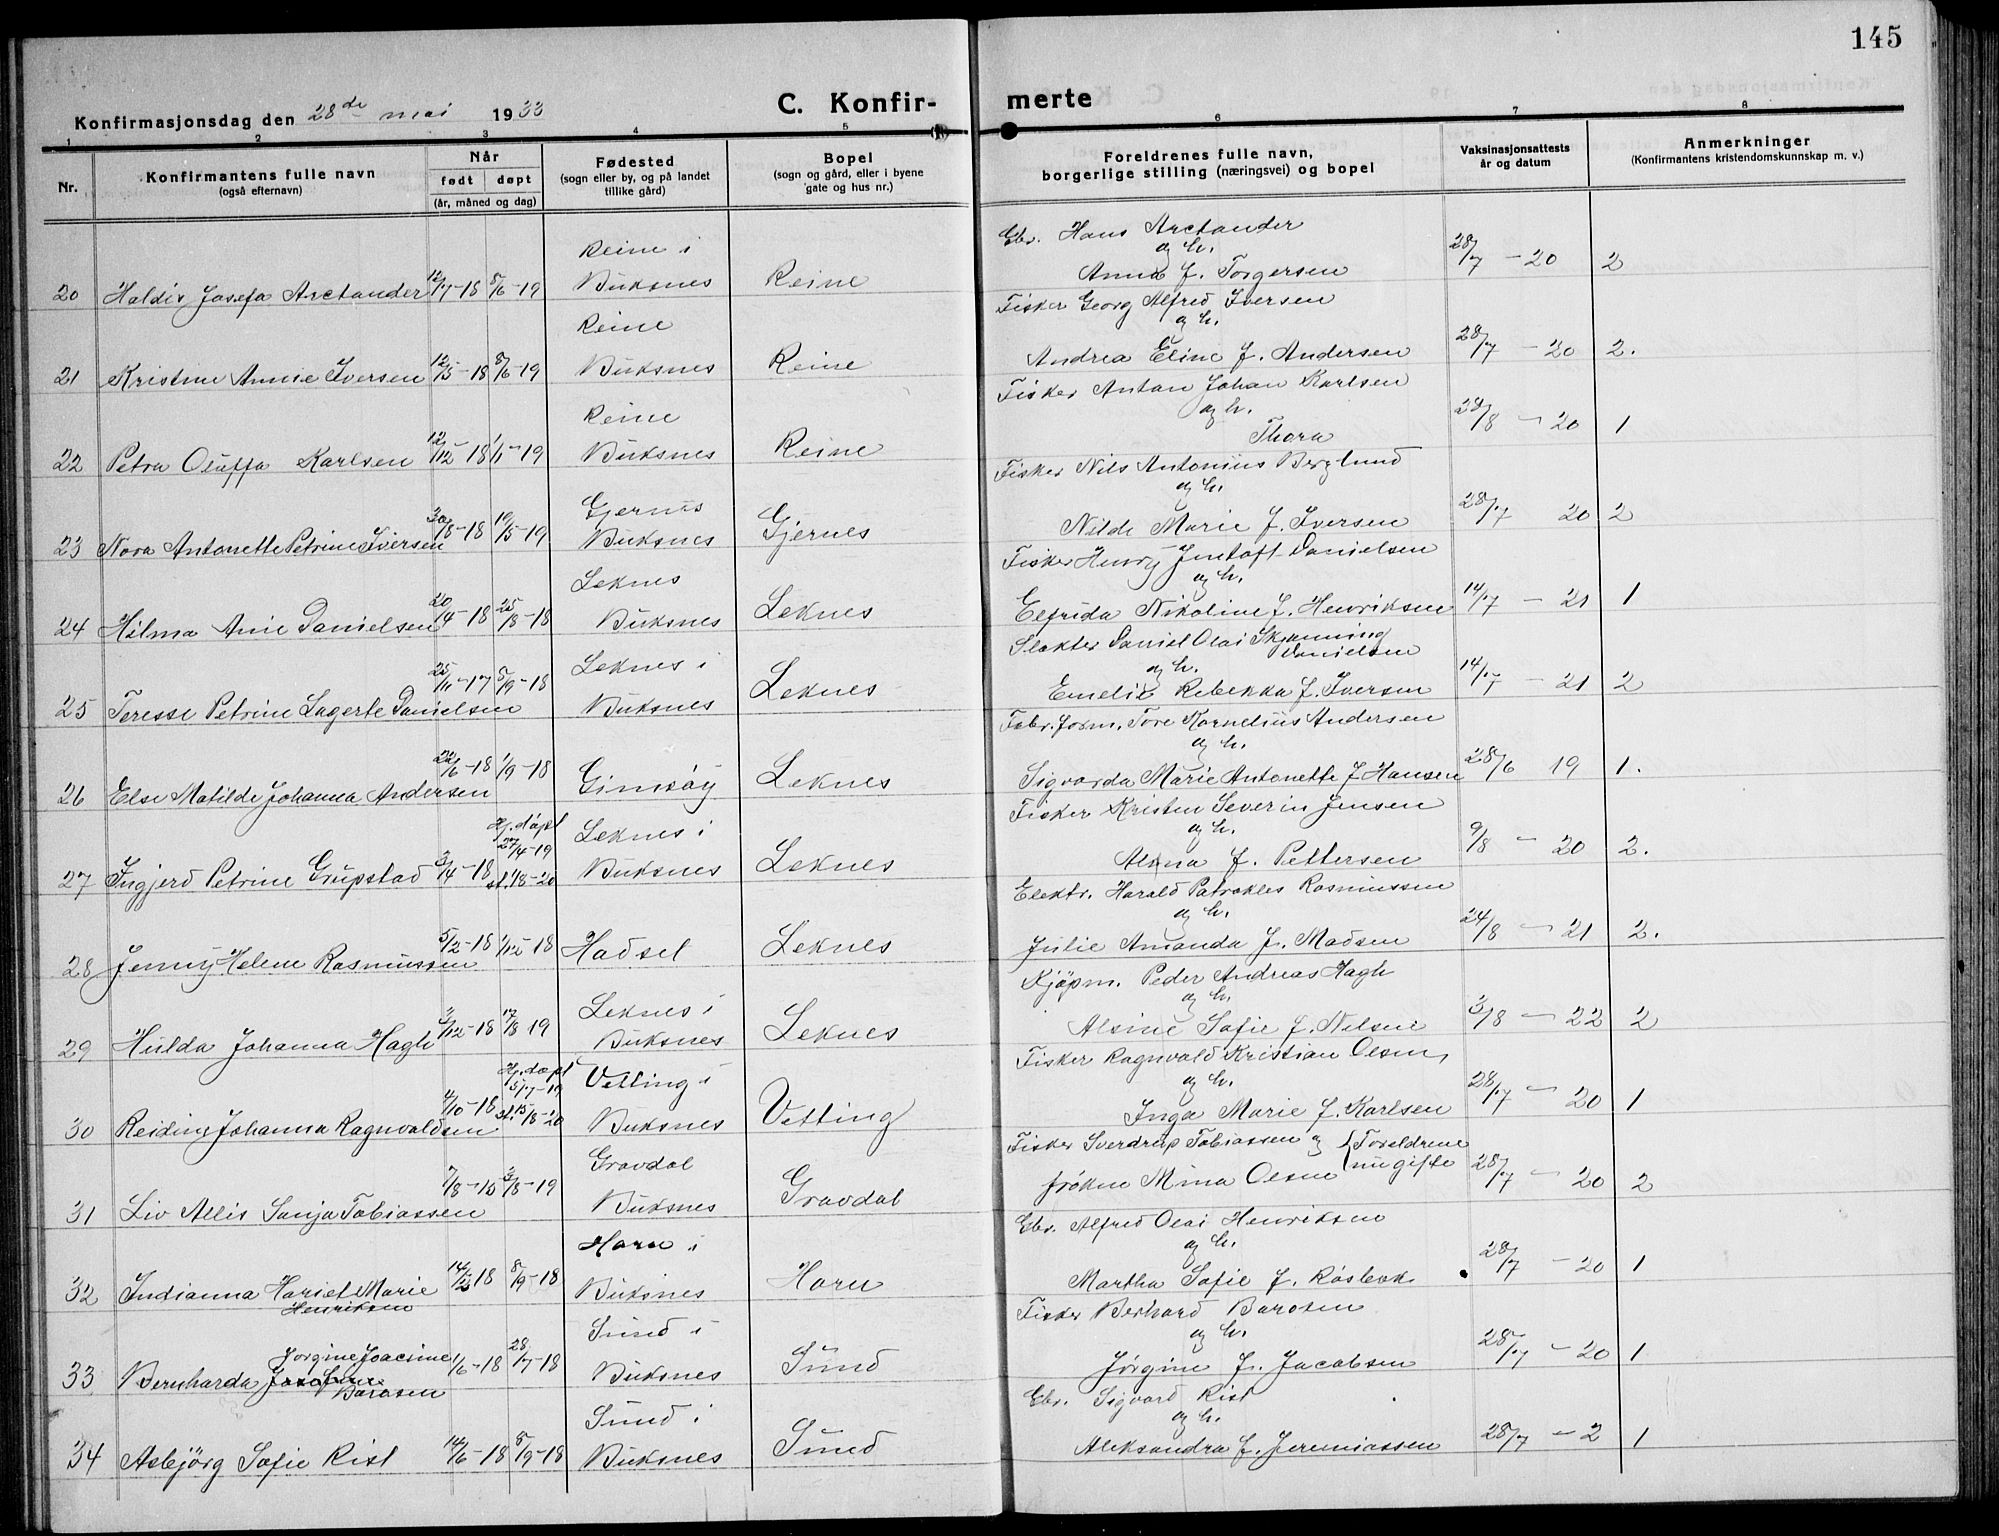 145
Konfirmasjonsdag den 28de mai 1933
C. Konfir- merte
1 2 3 4 5 6 7 8
Nr.
Konfirmantens fulle navn
(også efternavn)
Når
født døpt
(år, måned og dag)
Fødested
(sogn eller by, og på landet
tillike gård)
Bopel
(sogn og gård, eller i byene
gate og hus nr.)
Foreldrenes fulle navn,
borgerlige stilling (næringsvei) og bopel
Vaksinasjonsattests
år og datum
Anmerkninger
(Konfirmantens kristendomskunnskap m. v.)
20 Haldis Josefa Arctander 12/7-18 8/6-19 Reine i Buksnes Reine
Gbr. Hans Arctander
og h.
Anna f. Torgersen 28/7 - 20 2
21 Kristine Annie Iversen 12/5-18 8/6-19 Reine Buksnes Reine
Fisker Georg Alfred Iversen
og h.
Andrea Eline f. Andersen 28/7 - 20 2.
22 Petra Oluffa Karlsen 12/12-18 1/1-19 Reine Buksnes Reine
Fisker Anton Johan Karlsen
og h.
Thora 28/8 - 20 1
23 Nora Antonette Petrine Iversen 30/8-18 19/5-19 Gjernes Buksnes Gjernes
Fisker Nils Antonius Berglund
og h.
Nilde Marie f. Iversen 28/7 20 2
24 Hilma Anie Danielsen 20/4-18 25/8-18 Leknes Buksnes Leknes
Fisker Henry Jentoft Danielsen
og h.
Elfrida Nikoline f. Henriksen 14/7 - 21 1
25 Teresse Petrine Lagerte Danielsen 25/11-17 8/9-18 Leknes i Buksnes Leknes
Slakter Daniel Olai Skjanning
Danielsen
og h.
Emelie Rebekka f. Iversen 14/7 - 21 2
26 Else Matilde Johanna Andersen 22/6-18 1/9-18 Gimsöy Leknes
Fabr. form. Tore Kornelius Andersen
og h.
Sigvarda Marie Antonette f Hansen 28/6 19 1.
27 Ingjerd Petrine Grupstad 3/4-18 Hj. döpt 27/4-19 st. 1/8-20 Leknes i Buksnes Leknes
Fisker Kristen Severin Jensen
og h.
Alma f. Pettersen 9/8 - 20 2.
28 Jenny Helene Rasmussen 5/2-18 1/12-18 Hadsel Leknes
Elektr. Harald Patrokles Rasmussen
og h.
Julie Amanda f. Madsen 24/8 - 21 2.
29 Hulda Johanna Hagh 3/12-18 17/8 19 Leknes i Buksnes Leknes
Kjöpm. Peder Andreas Hagh
og h.
Alsine Sofie f. Nilsen 3/8 - 22 2
30 Reidun Johanna Ragnvaldsen 4/10-18 Hj. döpt 5/7-19 st. 15/8-20 Vetting i Buksnes Vetting
Fisker Ragnvald Kristian Olsen
og h.
Inga Marie f. Karlsen 28/7 - 20 1
31 Liv Allis Sanja Tobiassen 7/8-18 3/8-19 Gravdal Buksnes Gravdal
Fisker Sverdrup Tobiassen og
fröken Mina Olsen (Foreldrene
ugifte 28/7 - 20 2
32 Indianna Hariet Marie
Henriksen 14/5 18 8/9-18 Horn i Buksnes Horn
Gbr. Alfred Olai Henriksen
og h.
Martha Sofie f. Rösbak 28/7 - 20 1
33 Bernharda Jorgine Joacsine
Josefine
Barosen 1/6-18 28/7-18 Sund i Buksnes Sund
Fisker Berhard Barosen
og h.
Jörgine f. Jacobsen 28/7 - 20 1
34 Asbjörg Sofie Rist 14/6-18 8/9-18 Sund i Buksnes Sund
Gbr. Sigvard Rist
og h.
Aleksandra f. Jeremiassen 28/7 - 2 1